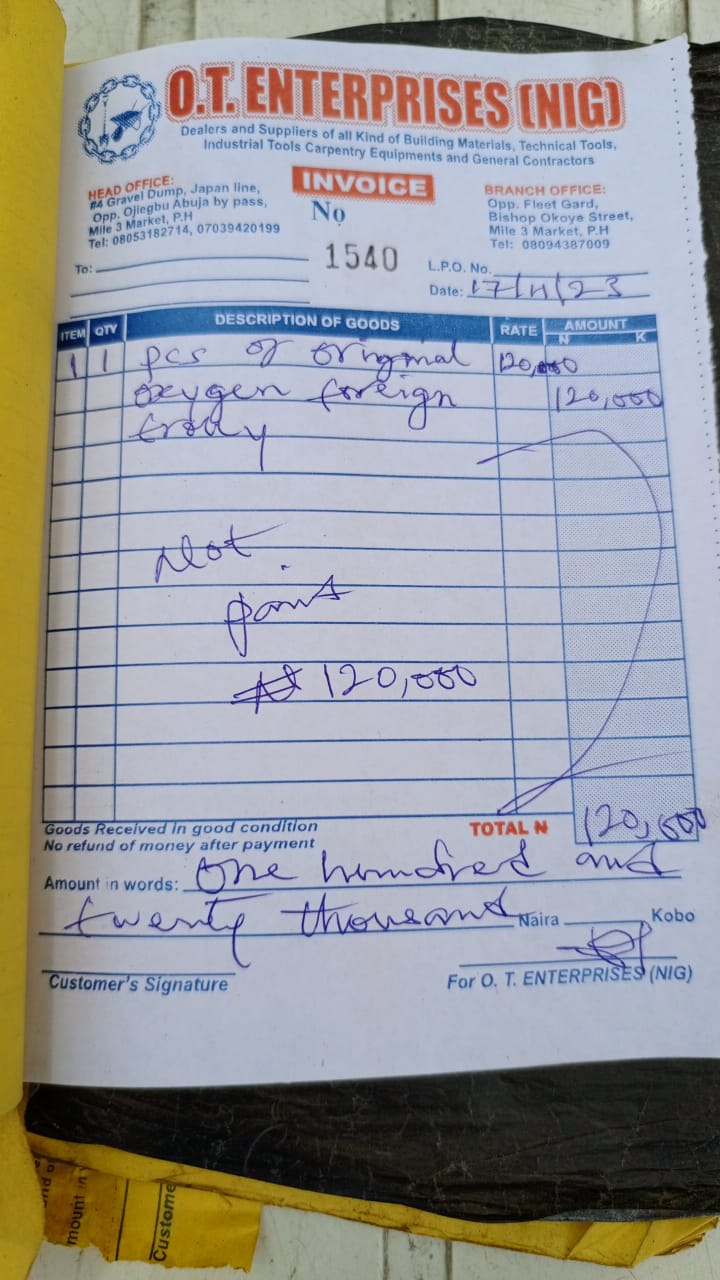 O.T. ENTERPRISES (NIG)
Dealers and Suppliers of all Kind of Building Materials, Technical Tools,
Industrial Tools Carpentry Equipments and General Contractors
HEAD OFFICE:
#4 Gravel Dump, Japan line,
Opp. Ojiegbu Abuja by pass,
Mile 3 Market, P.H
Tel: 08053182714, 07039420199
INVOICE
No
1540
BRANCH OFFICE:
Opp. Fleet Gard,
Bishop Okoye Street,
Mile 3 Market, P.H
Tel: 08094387009
To:
L.P.O. No.
Date: 17/11/23
ITEM QTY DESCRIPTION OF GOODS RATE AMOUNT
N K
1 1 pcs of original 120,000
oxygen foreign 120,000
trolly
Not
paid
₦ 120,000
Goods Received in good condition
No refund of money after payment
TOTAL N 120,000
Amount in words: One hundred and
twenty thousand Naira Kobo
Customer's Signature
For O. T. ENTERPRISES (NIG)
mount in
Custome